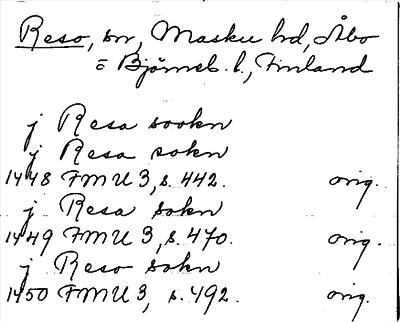 Reso, sn, Masku hd, Åbo
o Björneb. l., Finland
j Resa sookn
j Resa sokn
1448 FMU 3, s. 442. orig.
j Resa sokn
1449 FMU 3, s. 470. orig.
j Reso sokn
1450 FMU 3, s. 492. orig.